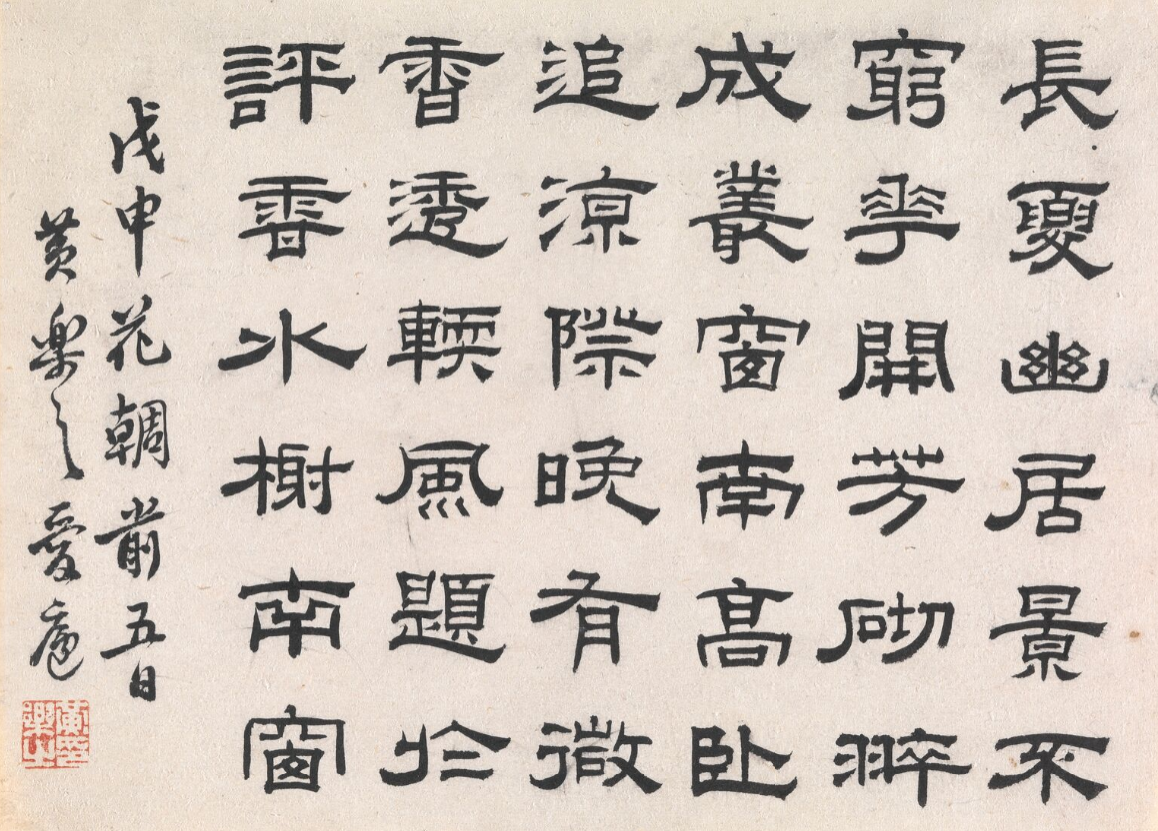 長夏幽居景不
窮華開芳砌翠
成叢窗南高卧
追涼際晚有微
香透輭風題於
評香水榭南窗
戊申花朝前五日
黃樂之愛廬
黃印樂之